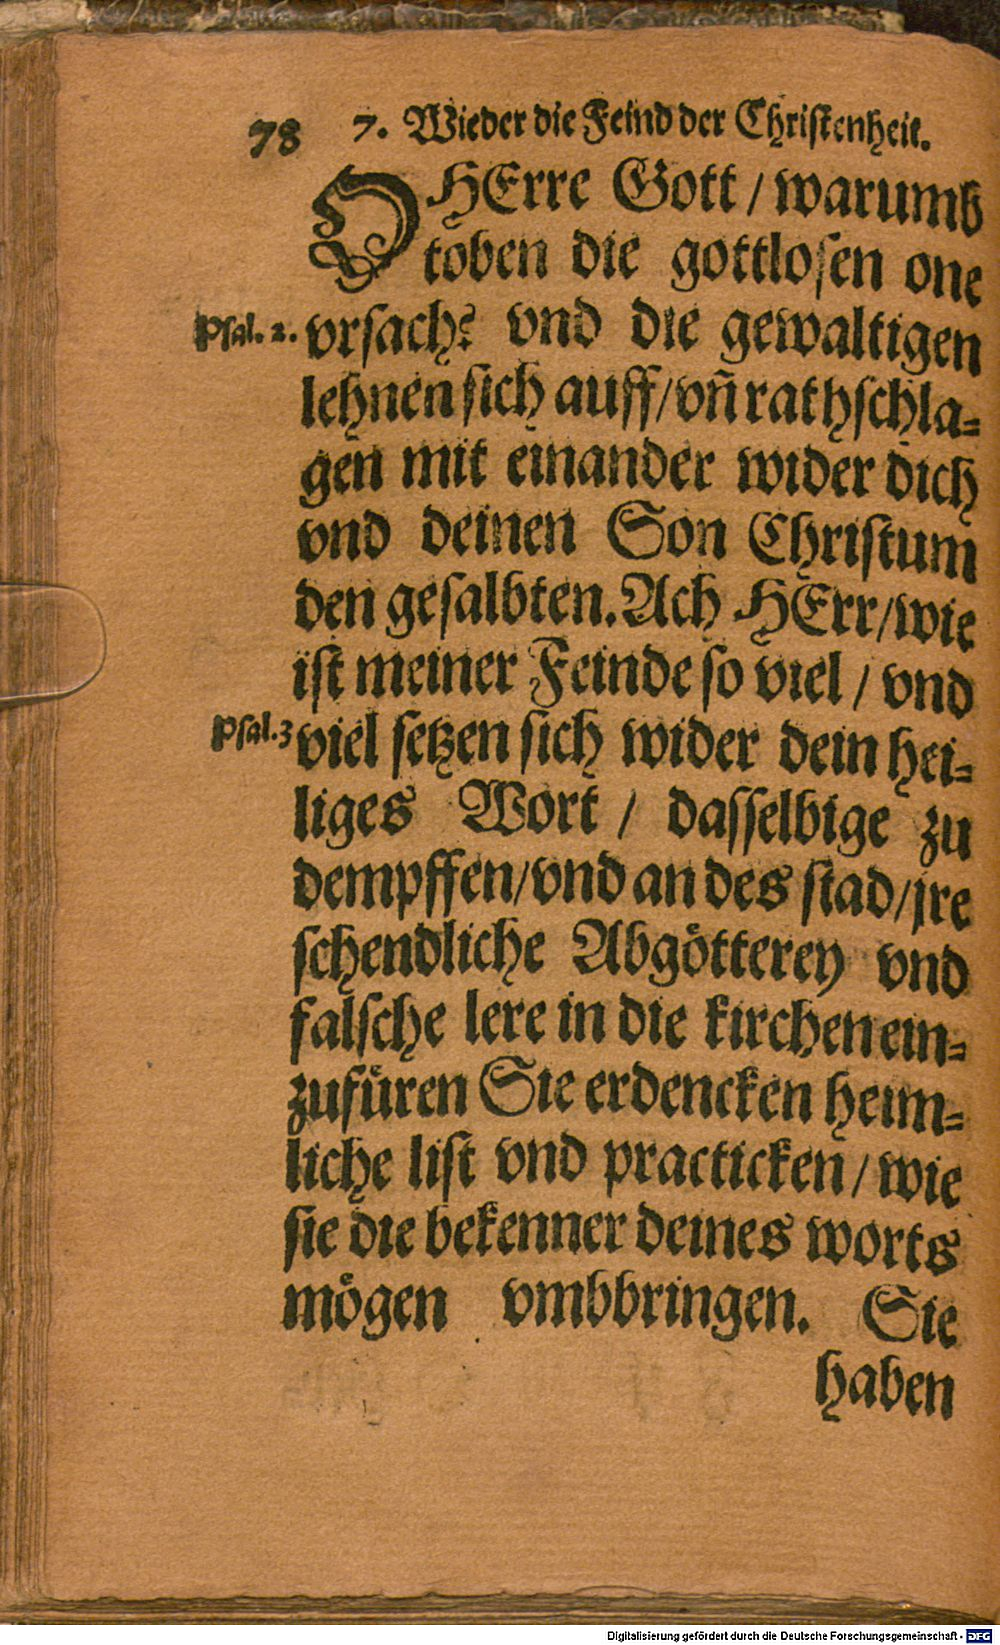 78 7. Wieder die Feind der Christenheit.
O HErre Gott / warumb
toben die gottlosen one
Psal. 2. vrsach? vnd die gewaltigen
lehnen sich auff / vñ rathschla=
gen mit einander wider dich
vnd deinen Son Christum
den gesalbten. Ach HErr / wie
ist meiner Feinde so viel / vnd
Psal. 3 viel setzen sich wider dein hei=
liges Wort / dasselbige zu
dempffen / vnd an des stad / jre
schendliche Abgötterey vnd
falsche lere in die kirchen ein=
zufüren Sie erdencken heim=
liche list vnd practicken / wie
sie die bekenner deines worts
mögen vmbbringen. Sie
haben
Digitalisierung gefördert durch die Deutsche Forschungsgemeinschaft - DFG